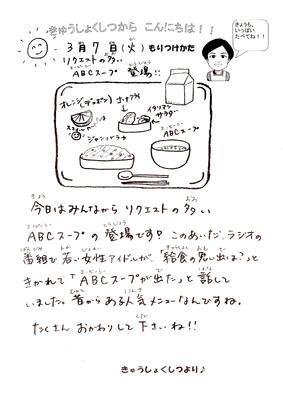 きゅうしょくしつから こんにちは！！
きょうも、
いっぱい
たべてね！！
3月7日(火) もりつけかた
リクエストの多い
ABCスープ 登場!!
オレンジ(デコポン)
イタリアン
サラダ
ABCスープ
ジャンバラヤ
今日はみんなから リクエストの 多い
ABCスープの 登場です! このあいだ、ラジオの
番組で 若い女性アイドルが、「給食の思い出は?」と
きかれて「ABCスープが出た」と 話して
いました。昔から ある人気 メニューなんですね。
たくさん おかわりして 下さいね!!
きゅうしょくしつより♪